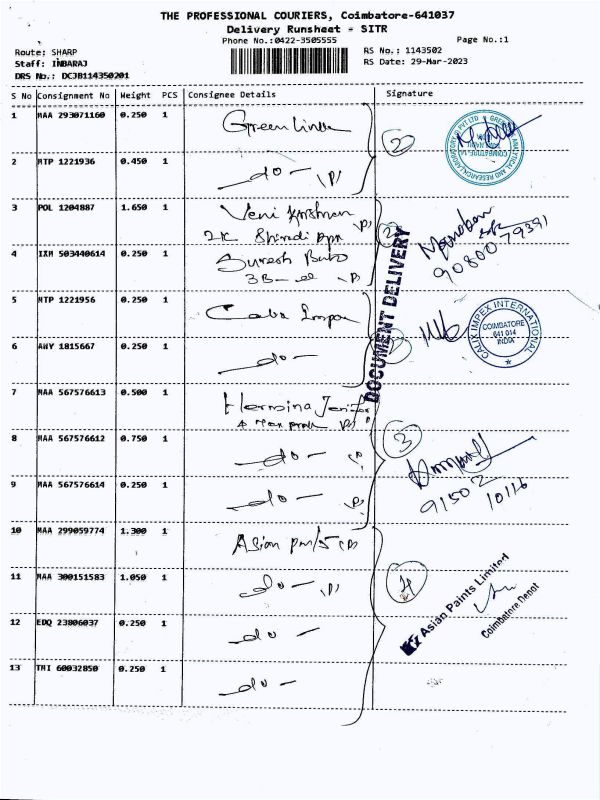 THE PROFESSIONAL COURIERS, Coimbatore-641037
Delivery Runsheet - SITR
Phone No.:0422-3505555
Page No.:1
Route: SHARP
RS No.: 1143502
Staff: INBARAJ
RS Date: 29-Mar-2023
DRS No.: DCJB114350201
S No Consignment No Weight PCS Consignee Details Signature
1 MAA 293071160 0.250 1
2
2 MTP 1221936 0.450 1 -do- (P)
3 POL 1204887 1.650 1 Veni Krishnan (P)
2
4 IXM 503440614 0.250 1 Suresh Babu
90800 79391
DOCUMENT DELIVERY
5 MTP 1221956 0.250 1
CALIX IMPEX INTERNATIONAL
COIMBATORE
641 014
INDIA
6 AWY 1815667 0.250 1 -do-
7 MAA 567576613 0.500 1 Hermina
3
8 MAA 567576612 0.750 1 -do- (P)
91502 10116
9 MAA 567576614 0.250 1 -do- (P)
10 MAA 299059774 1.300 1 Asian (P)
4
11 MAA 300151583 1.050 1 -do- (P)
Asian Paints Limited
Coimbatore Depot
12 EDQ 23806037 0.250 1 -do-
13 TMI 60032850 0.250 1 -do-